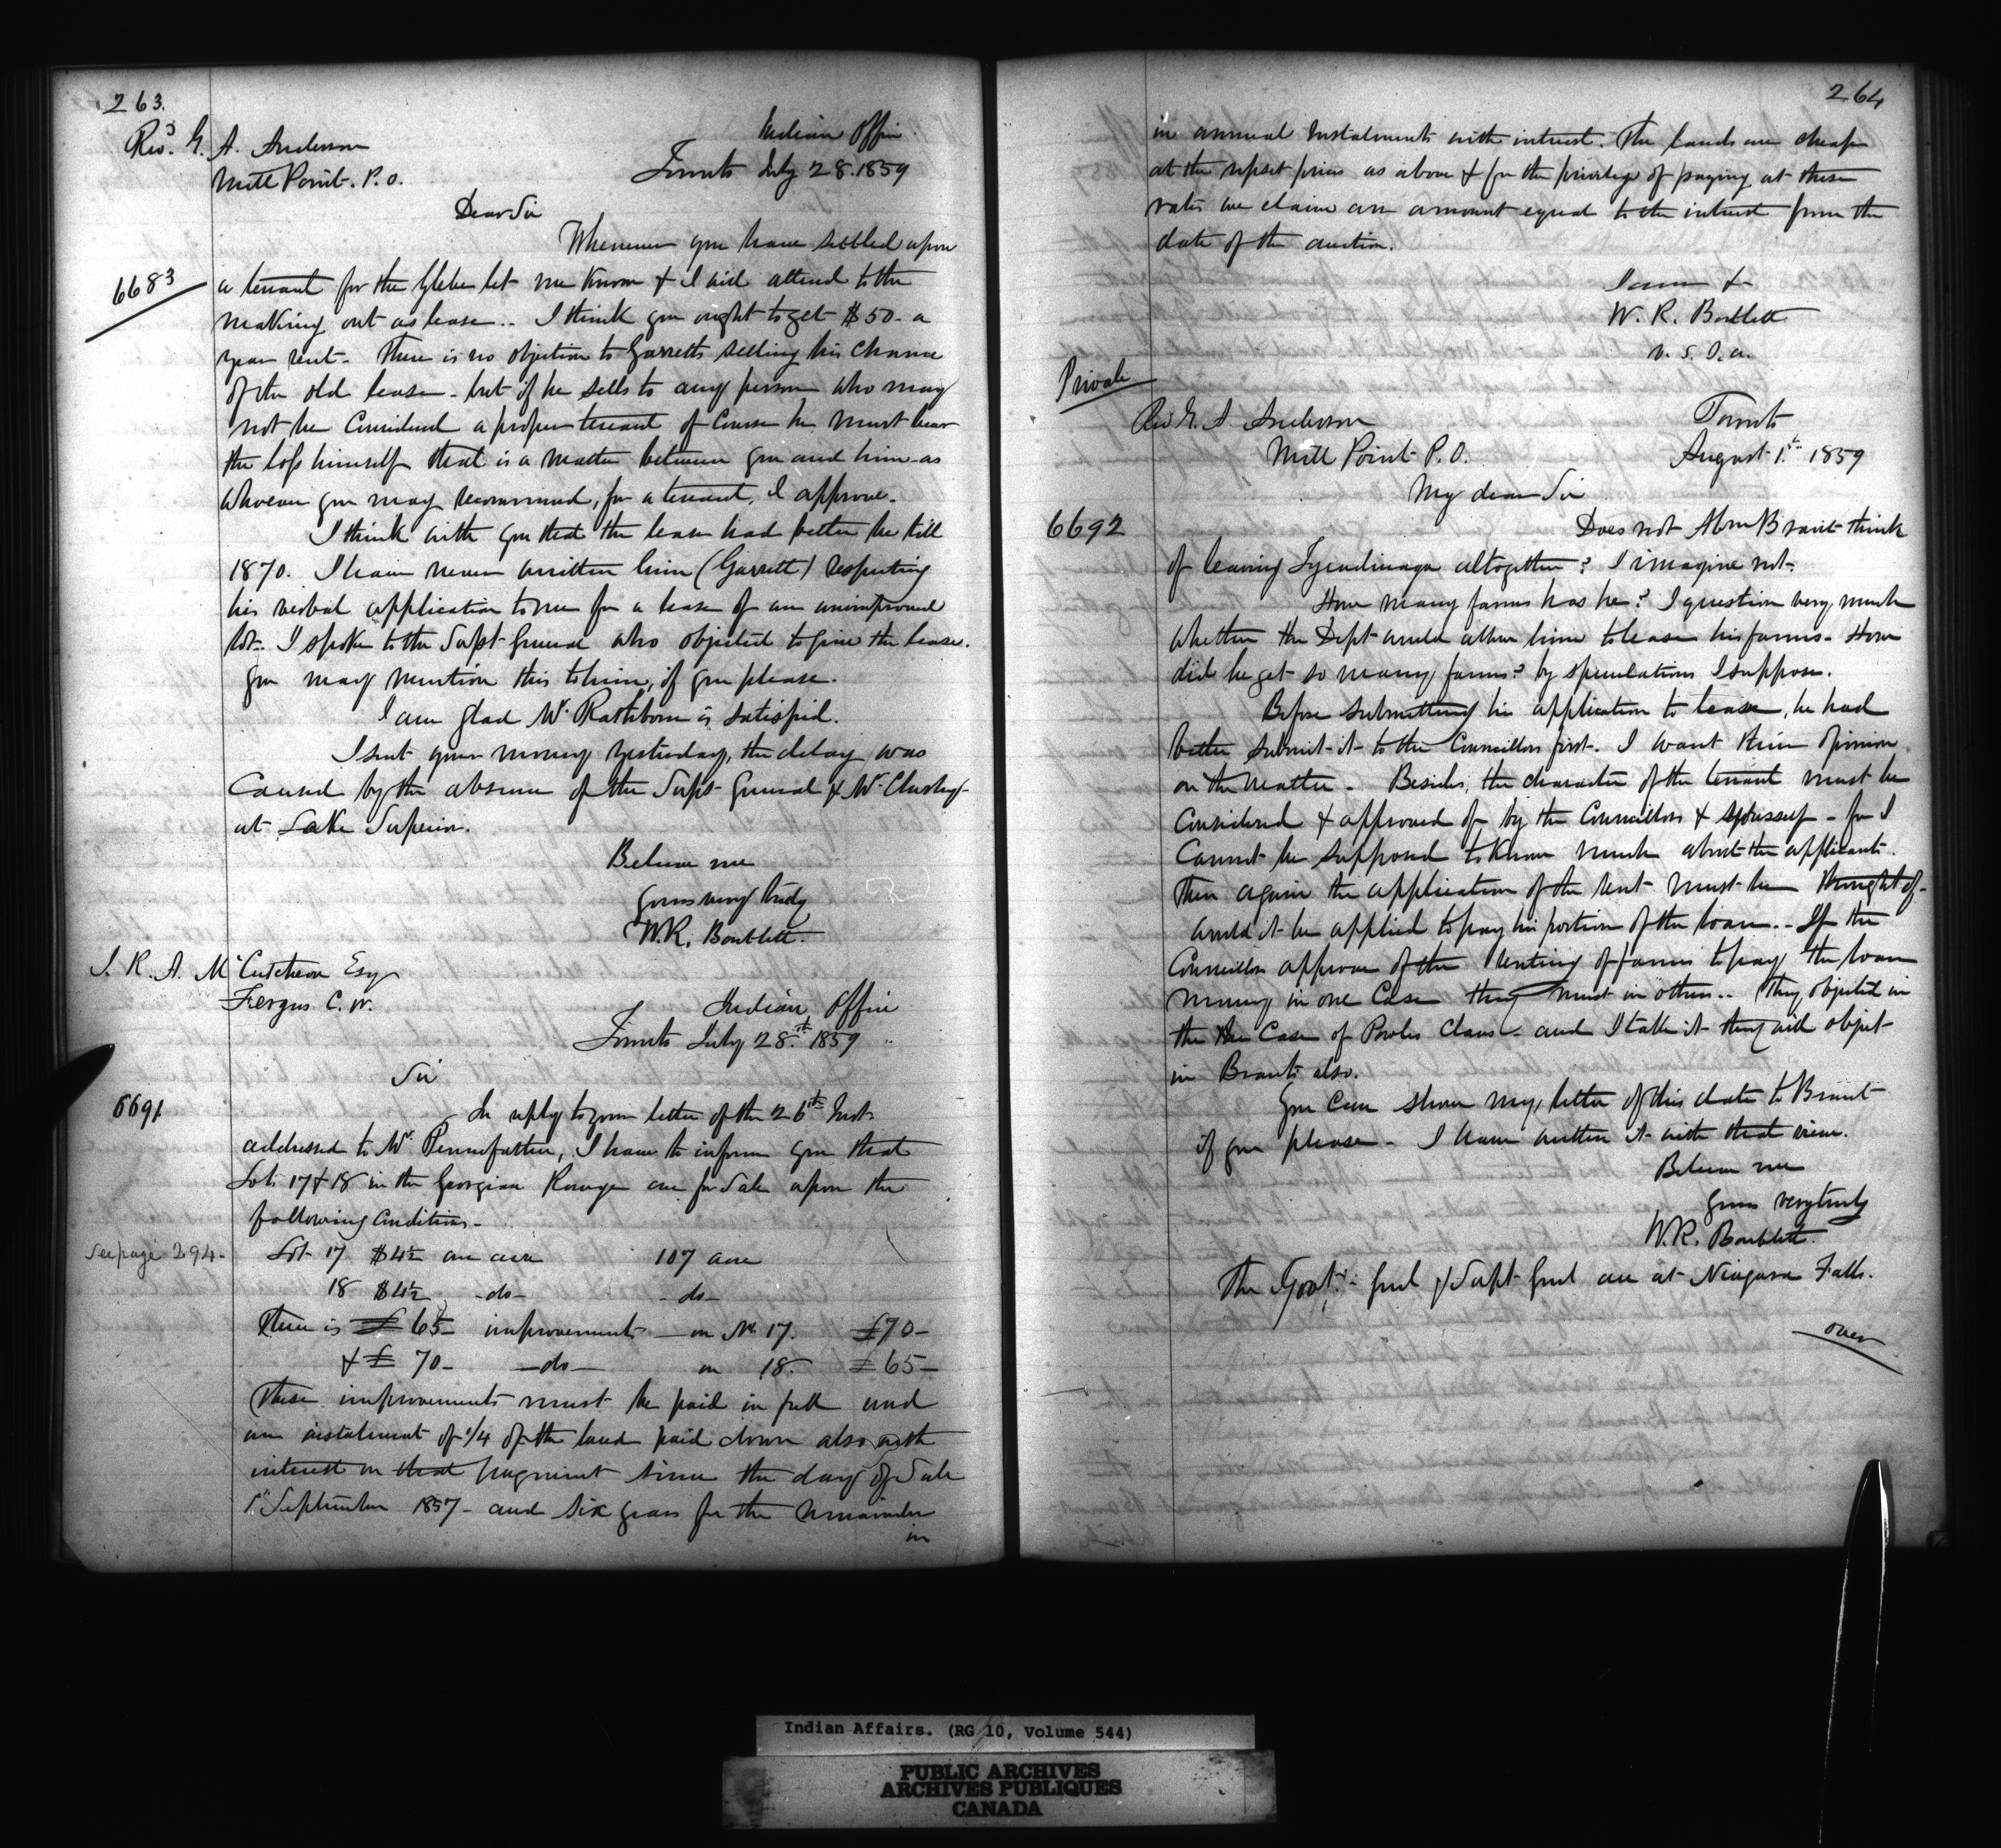 263.
Revd. G. A. Anderson
Mill Point. P.O.
Indian Office
Toronto July 28. 1859
Dear Sir
Whenever you have settled upon
6683
a tenant for the Glebe let me know & I will attend to the
making out as lease.. I think you ought to get $50 - a
year rent - There is no objection to Garretts selling his chance
of the old lease - but if he sells to any person who may
not be considered a proper tenant of course he must bear
the loss himself that is a matter between you and him - as
whoever you may recommend, for a tenant, I approve.
I think with you that the lease had better be till
1870. I have never written him (Garrett) respecting
his verbal application to me for a lease of an unimproved
lot. I spoke to the Supt General who objected to give the lease.
you may mention this to him, if you please.
I am glad Mr. Rathbone is satisfied.
I sent your money yesterday, the delay was
caused by the absence of the Supt General & Mr.
at Lake Superior.
Believe me
yours very truly
W.R. Bartlett.
J. R. A. McCutcheon Esq
Fergus C. W.
Indian Office
Toronto July 28th. 1859
Sir
6691
In reply to your letter of the 26th Inst
addressed to Mr. Pennefather, I have to inform you that
Lots 17 & 18 in the Georgian Range are for Sale upon the
following conditions -
See page 294 -
Lot 17 $4½ an acre 107 acre
18 $4½ - do - - do -
There is £ 65 - improvements - on No. 17. £70 -
& £ 70 - - do - on 18. £65 -
These improvements must be paid in full and
an instalment of 1/4 of the land paid down also with
interest on that payment since the day of Sale
1st September 1857 - and six years for the remainder
in
264
in annual instalments with interest. The lands are cheap
at the upset prices as above & for the privilege of paying at these
rates we claim an amount equal to the interest from the
date of the auction.
I am &
W. R. Bartlett
v. s. I. a.
Private
Rev G. A. Anderson
Mill Point P.O.
Toronto
August 1st 1859
My dear Sir
6692
Does not Abm Brant think
of leaving Tyendinaga altogether? I imagine not.
How many farms has he? I question very much
whether the Dept would allow him to lease his farms - How
did he get so many farms? by speculations I suppose.
Before submitting his application to lease, he had
better submit it to the Councillors first. I want their opinion
on the matter - Besides, the character of the tenant must be
considered & approved of by the Councillors & yourself - for I
cannot be supposed to know much about the applicants.
Then again the application of the rent must be thought of -
would it be applied to pay his portion of the loan.. If the
Councillors approve of the renting of farms to pay the loan
money in one case they must in others.. They objected in
the case of Powles Claus - and I take it they will object
in Brants also.
You can show my letter of this date to Brant
if you please - I have written it with that view.
Believe me
yours very truly
W.R. Bartlett.
The Govr. Genl & Supt Genl are at Niagara Falls.
over
Indian Affairs. (RG 10, Volume 544)
PUBLIC ARCHIVES
ARCHIVES PUBLIQUES
CANADA